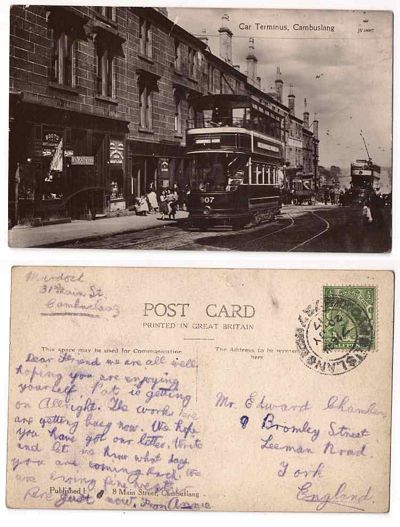 Car Terminus, Cambuslang
BOOTS
907
Murdoch
31 Main St.
Cambuslang
POST CARD
PRINTED IN GREAT BRITAIN
This space may be used for Communication
The Address to be written here
Dear Friend we are all well
hoping you are enjoying
yourself. Pat is getting
on Allright. The works here
are getting busy now. We hope
you have got our letter. Write
and let us know what day
you are coming back. We
are having fine weather
here Just now. From Annie
Mr. Edward Chamber
9 Bromley Street
Leeman Road
York
England.
Published
8 Main Street, Cambuslang